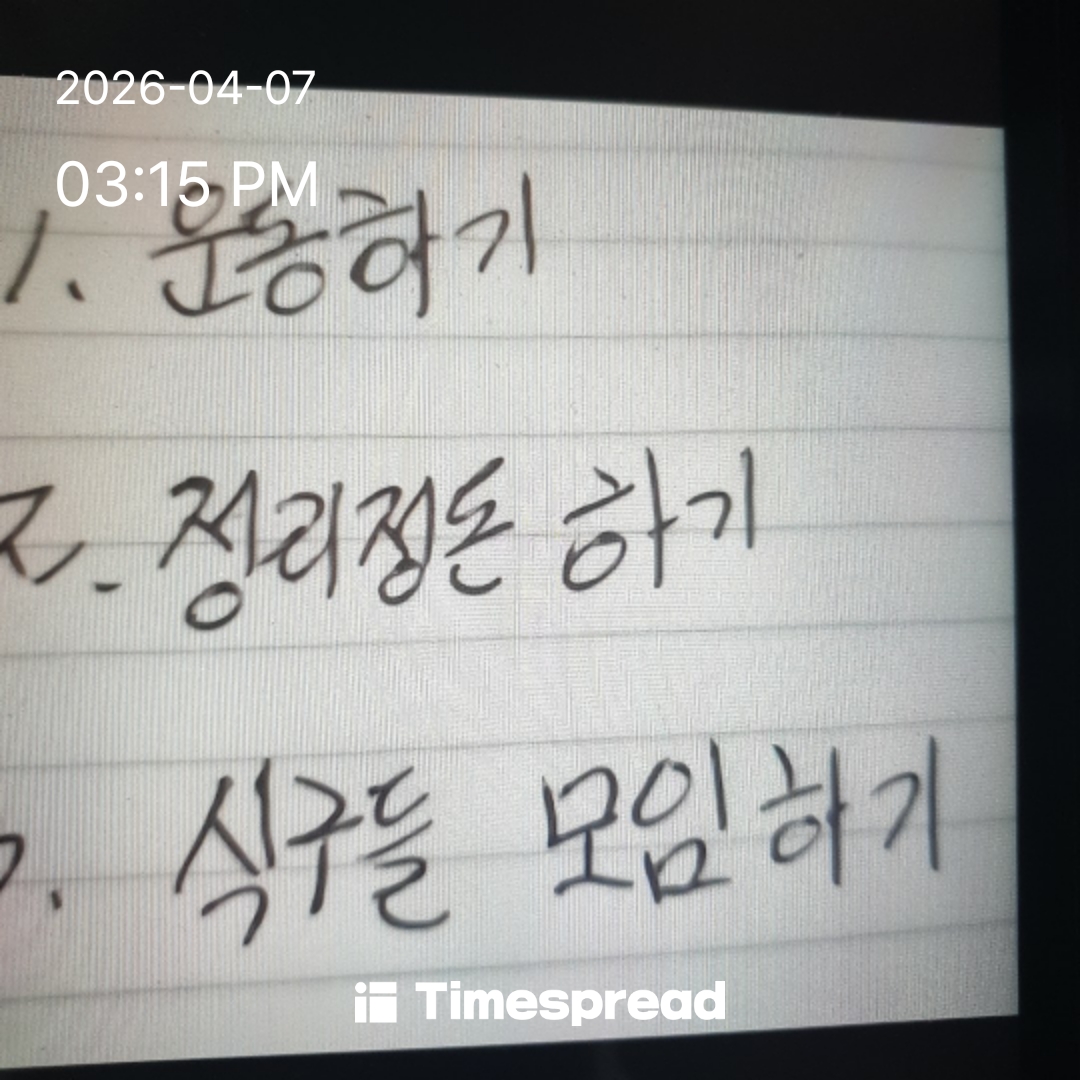 2026-04-07
03:15 PM
1. 운동하기
2. 정리정돈 하기
3. 식구들 모임하기
Timespread